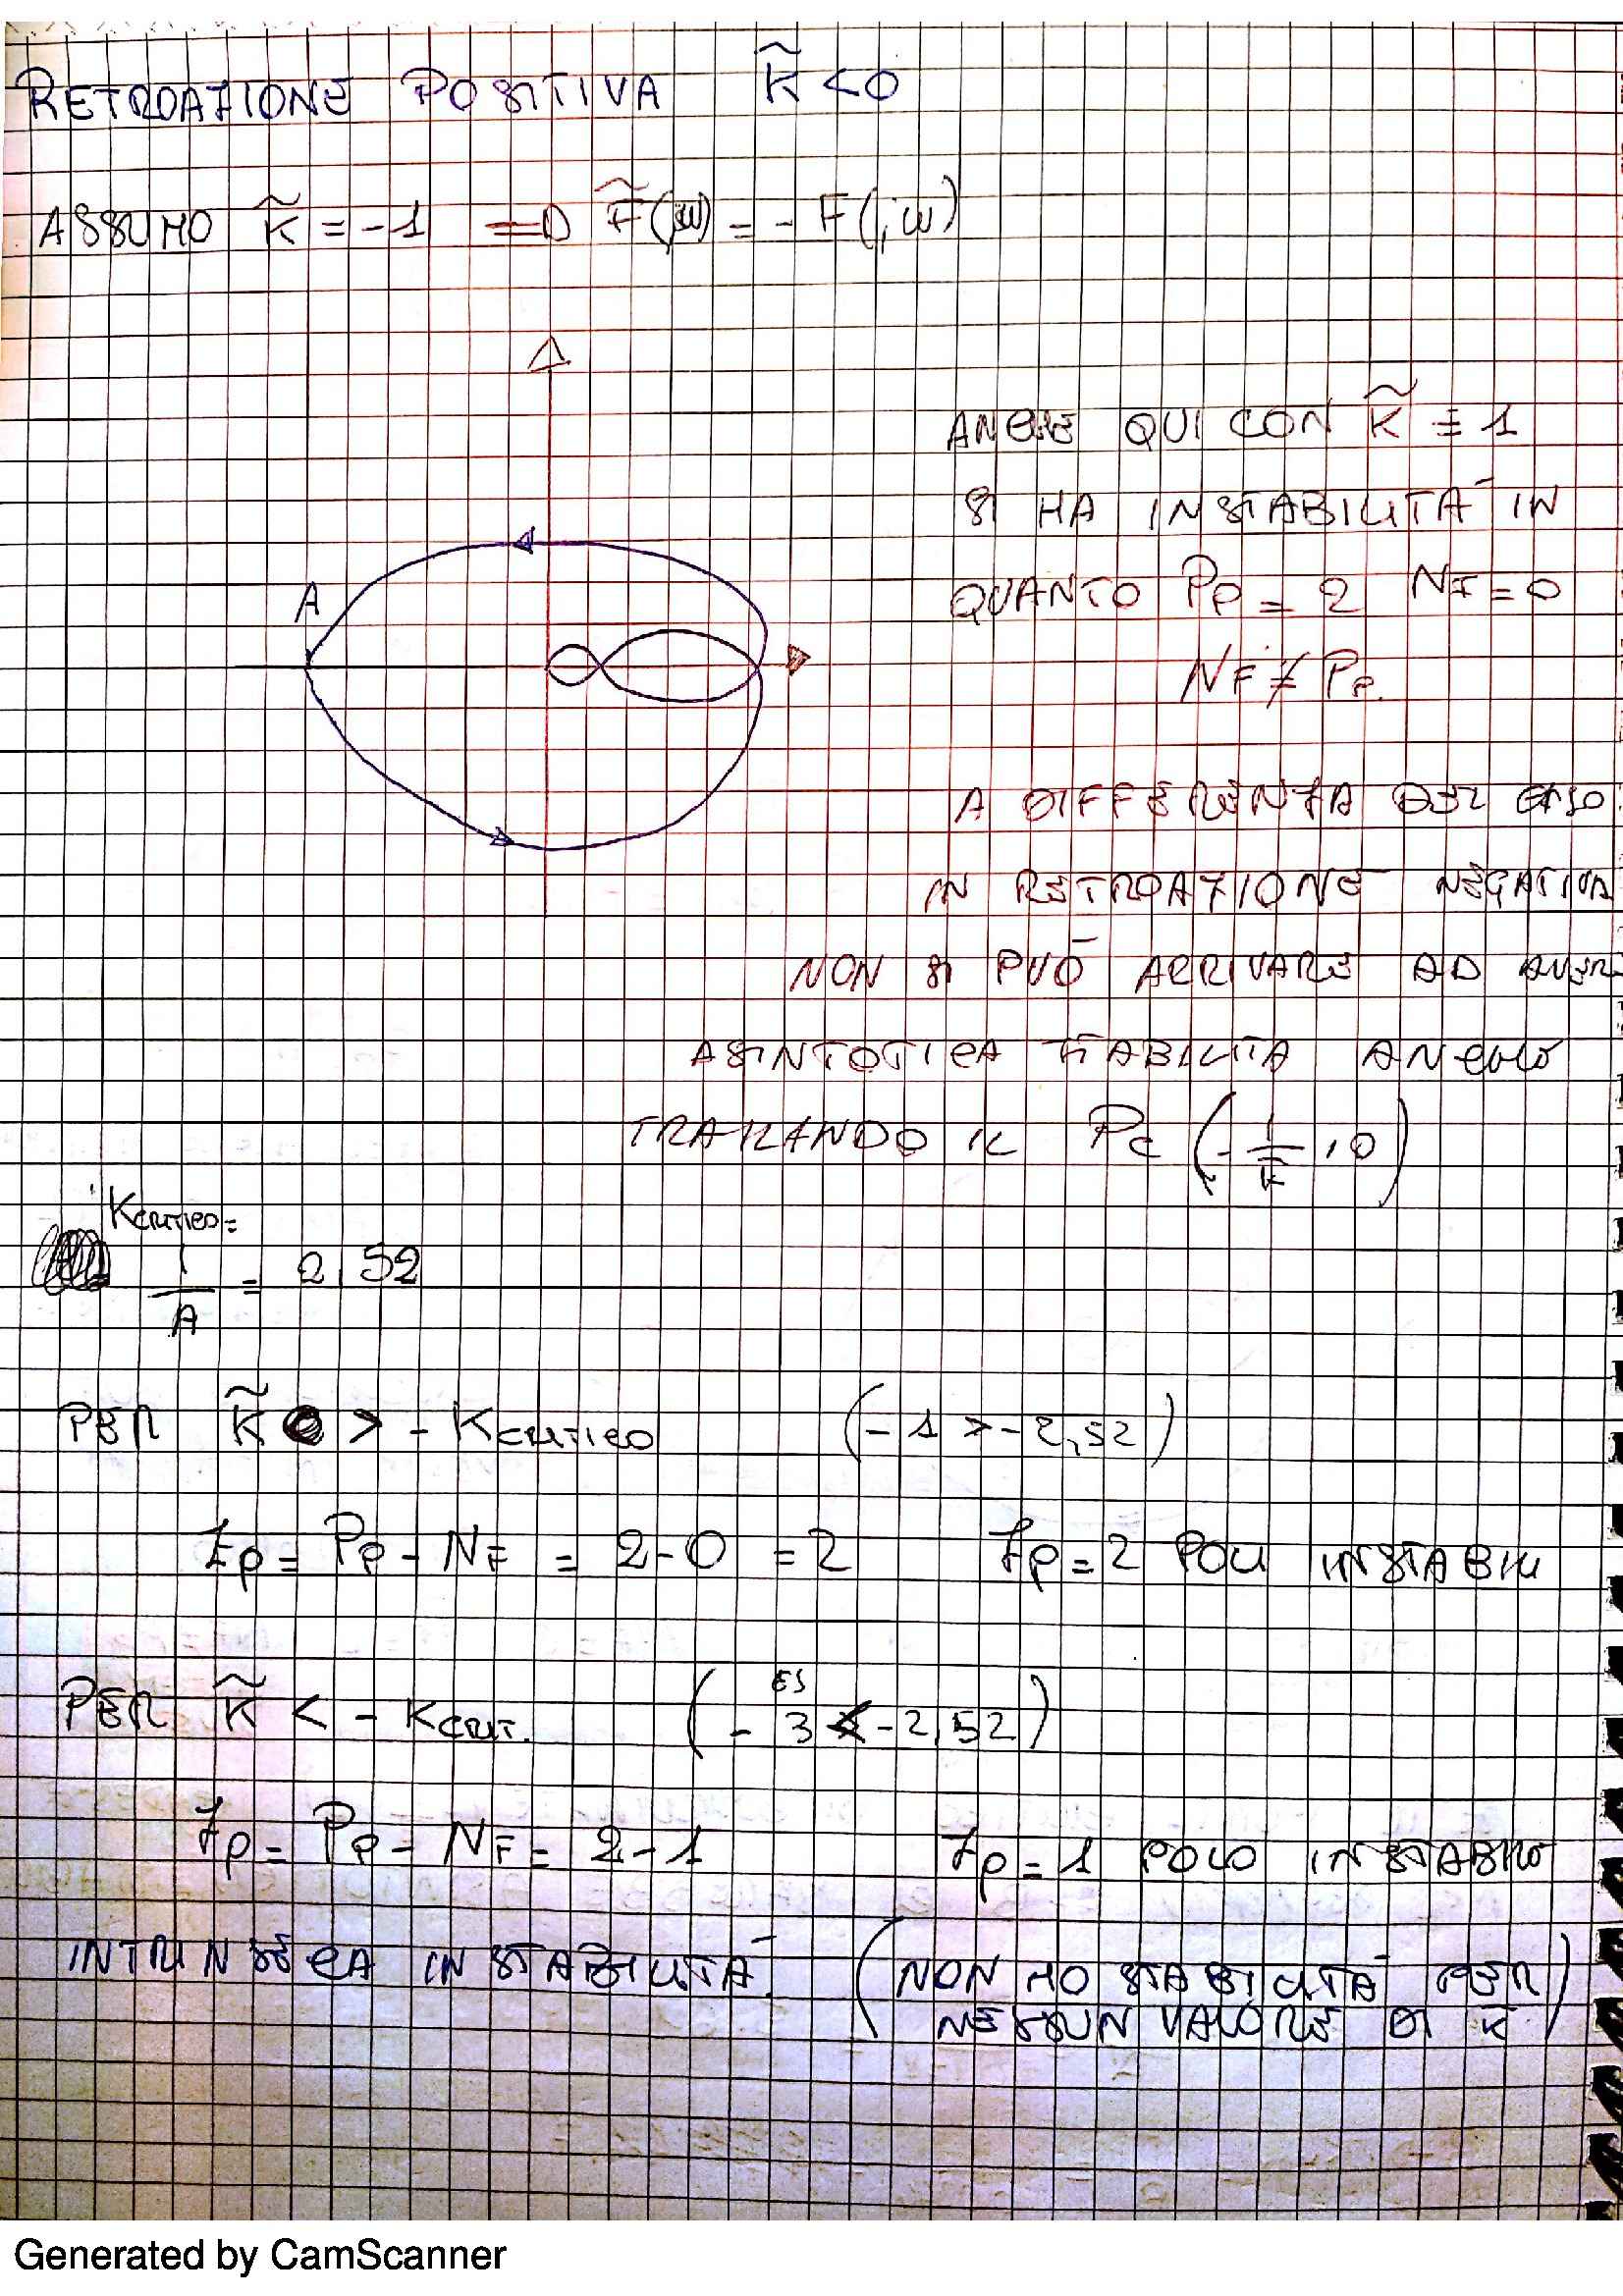 RETROAZIONE POSITIVA K̃ <0
ASSUMO K̃ = -1 => F̃(jω) = - F(jω)
A
ANCHE QUI CON K̃ = 1
SI HA INSTABILITÀ IN
QUANTO Pp = 2 NF = 0
NF ≠ Pp.
A DIFFERENZA DEL CASO
IN RETROAZIONE NEGATIVA
NON SI PUÒ ARRIVARE AD AVERE
ASINTOTICA STABILITÀ ANCHE
TRASLANDO IL Pc (-1/K̃, 0)
Kcritico =
1/A = 2,52
PER K̃ > - Kcritico (-1 > -2,52)
Zp = Pp - NF = 2-0 = 2 Zp = 2 POLI INSTABILI
PER K̃ < - Kcrit. (ES -3 < -2,52)
Zp = Pp - NF = 2-1 Zp = 1 POLO INSTABILE
INTRINSECA INSTABILITÀ. (NON HO STABILITÀ PER
NESSUN VALORE DI K)
Generated by CamScanner